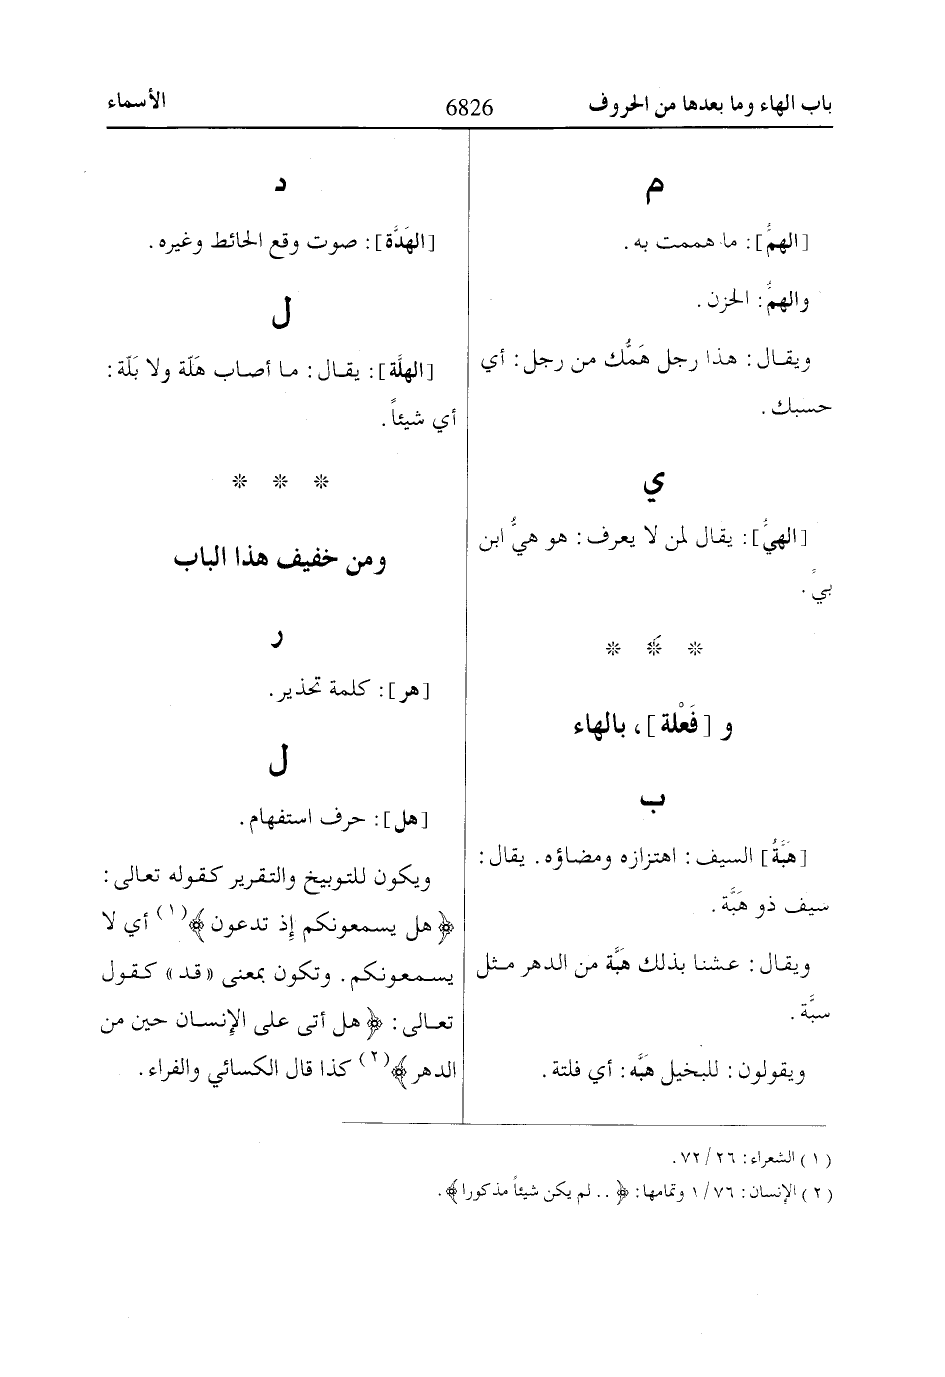 باب الهاء وما بعدها من الحروف
6826
الأسماء
م
[الهمُّ]: ما هممت به.
والهمُّ: الحزن.
ويقال: هذا رجل هَمُّك من رجل: أي
حسبك.
ي
[الهيُّ]: يقال لمن لا يعرف: هو هيُّ ابن
بيٍّ.
* * *
و [فَعْلة]، بالهاء
ب
[هَبَّةُ] السيف: اهتزازه ومضاؤه. يقال:
سيف ذو هَبَّة.
ويقال: عشنا بذلك هَبَّة من الدهر مثل
سبَّة.
ويقولون: للبخيل هبَّه: أي فلتة.
د
[الهَدَّة]: صوت وقع الحائط وغيره.
ل
[الهلَّة]: يقال: ما أصاب هَلّة ولا بَلّة:
أي شيئاً.
* * *
ومن خفيف هذا الباب
ر
[هر]: كلمة تحذير.
ل
[هل]: حرف استفهام.
ويكون للتوبيخ والتقرير كقوله تعالى:
﴿هل يسمعونكم إذ تدعون﴾(١) أي لا
يسمعونكم. وتكون بمعنى «قد» كقول
تعالى: ﴿هل أتى على الإنسان حين من
الدهر﴾(٢) كذا قال الكسائي والفراء.
(١) الشعراء: ٢٦/ ٧٢.
(٢) الإنسان: ٧٦/ ١ وتمامها: ﴿.. لم يكن شيئاً مذكورا﴾.